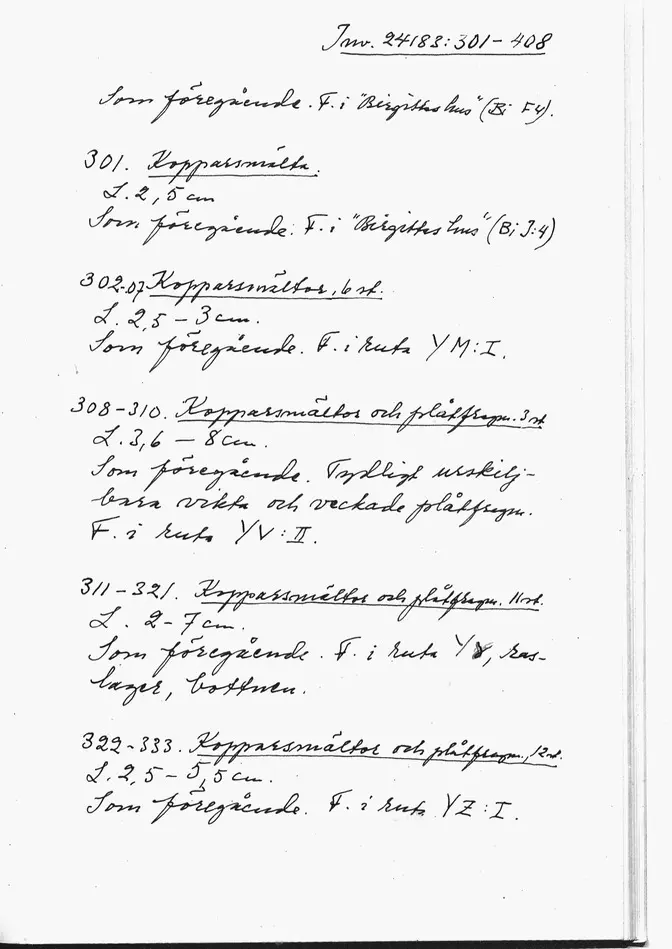 Inv. 24183:301-408
Som föregående. F. i "Birgittas hus" (Bi F4).
301. Kopparsmälta.
L. 2,5 cm
Som föregående. F. i "Birgittas hus" (Bi J:4)
302-07 Kopparsmältor, 6 st.
L. 2,5 - 3 cm.
Som föregående. F. i ruta YM:I.
308-310. Kopparsmältor och plåtfragm. 3 st
L. 3,6 - 8 cm.
Som föregående. Tydligt urskilj-
bara vikta och veckade plåtfragm.
F. i ruta YV:II.
311-321. Kopparsmältor och plåtfragm. 11 st.
L. 2-7 cm.
Som föregående. F. i ruta, ras-
lager, bottnen.
322-333. Kopparsmältor och plåtfragm., 12 st.
L. 2,5 - 5,5 cm.
Som föregående. F. i ruta YZ:I.